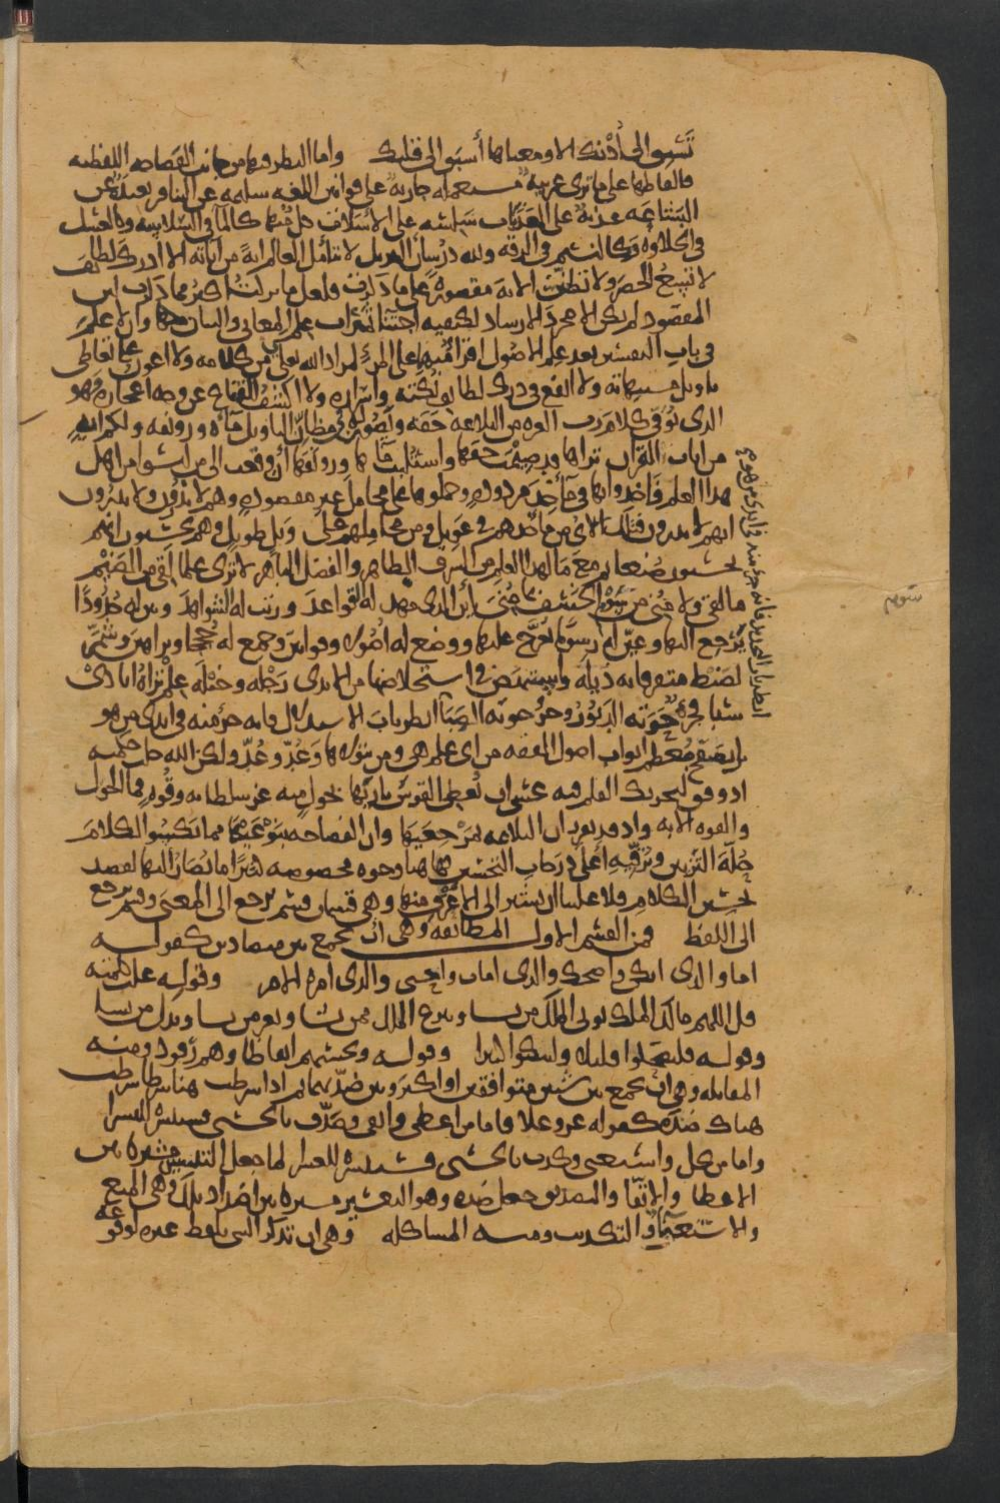 تسبق إلى أذنك الا ومعناها أسبق الى قلبك واما النظر فيها من جانب الفصاحة اللفظية
فالفاظها على ما ترى عربية مستعملة جارية على قوانين اللغة سليمة عن التنافر بعيدة عن
البشاعة عذبة على العذبات سلسة على الاسلات كل منها كالماء في السلاسة وكالعسل
في الحلاوة وكالنسيم في الرقة ولله در شأن التنزيل لا يتأمل العالم اية من اياته الا ادرك لطائف
لا تسع الحصر ولا تظنن الاية مقصورة على ما ذكرت فلعل ما تركت اكثر مما ذكرت لان
المقصود لم يكن الا مجرد الارشاد لكيفية اجتناء ثمرات علمي المعاني والبيان وان لا علم
في باب التفسير بعد علم الاصول اقرأ منهما على المرء لمراد الله تعالى من كلامه ولا اعون على تعاطي
تاويل مشتبهاته ولا انفع في درك لطائف نكته واسراره ولا اكشف القناع عن وجه اعجازه وهو
الذي يوفي كلام رب العزة من البلاغة حقه ويصون له في مظان التاويل ماءه ورونقه ولكم اية
من ايات القران تراها قد ضيمت حقها واستلبت ماءها ورونقها أن وقعت الى من ليسوا من اهل
هذا العلم فاخذوا بها في مآخذ مردودة وحملوها على محامل غير مقصودة وهم لا يدرون ولا يدرون
انهم لا يدرون فتلك الاي من مآخذهم في عويل ومن محاملهم على ويل طويل وهم يحسبون انهم
يحسنون صنعا ثم مع ما لهذا العلم من الشرف الظاهر والفضل الباهر لا ترى علما لقي من الضيم
ما لقي ولا مني من سوم الخسف بما مني أين الذي مهد له قواعد ورتب له شواهد وبين له حدودا
يرجع اليها وعين له رسوما يعرج عليها ووضع له اصولا وقوانين وجمع له حججا وبراهين وشمر
لضبط متفرقاته ذيله واستنهض في استخلاصها من الايدي رجله وخيله علم تراه ايادي
سبا فجزء حوته الدبور وجزء حوته الصبا انظر باب الاستدلال فانه جزء منه في ايدي من هو
بل تصفح معظم ابواب اصول الفقه من اي علم هي ومن يتولاها وعد وعد ولكن الله جل حكمته
اذ وفق لتحريك القلم فيه عسى ان يعطي القوس باريها بحول منه عز سلطانه وقوة فما الحول
والقوة الا به واذ قد تقرر ان البلاغة بمرجعيها وان الفصاحة بنوعيها مما يكسو الكلام
حلة التزيين ويرقيه اعلى درجات التحسين فها هنا وجوه مخصوصة كثيرا ما يصار اليها لقصد
تحسين الكلام فلا علينا ان نشير الى الاعرف منها وهي قسمان قسم يرجع الى المعنى وقسم يرجع
الى اللفظ فمن القسم الاول المطابقة وهي ان تجمع بين متضادين كقوله
اما والذي ابكى واضحك والذي امات واحيى والذي امره الامر وقوله علت كلمته
قل اللهم مالك الملك توتي الملك من تشا وتنزع الملك ممن تشا وتعز من تشا وتذل من تشا
وقوله فليضحكوا قليلا وليبكوا كثيرا وقوله وتحسبهم ايقاظا وهم رقود ومنه
المقابلة وهي ان تجمع بين شيئين متوافقين او اكثر وبين ضديهما ثم اذا شرطت هنا شرطا شرطت
هناك ضده كقوله عز وعلا فاما من اعطى واتقى وصدق بالحسنى فسنيسره لليسرى
واما من بخل واستغنى وكذب بالحسنى فسنيسره للعسرى لما جعل التيسير مشتركا بين
الاعطا والاتقا والتصديق جعل ضده وهو التعسير مشتركا بين اضداد تلك وهي المنع
والاستغنا والتكذيب ومنه المشاكلة وهي ان تذكر الشي بلفظ غيره لوقوعه
انظر باب التحديد فانه جزء منه في ايدي من هو ثم
سوم